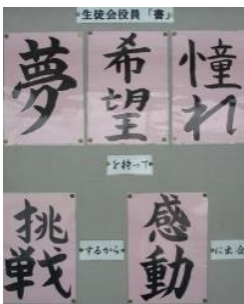 生徒会役員「書」
夢 希望 憧れ
を持って
挑戦 するから 感動 に出会